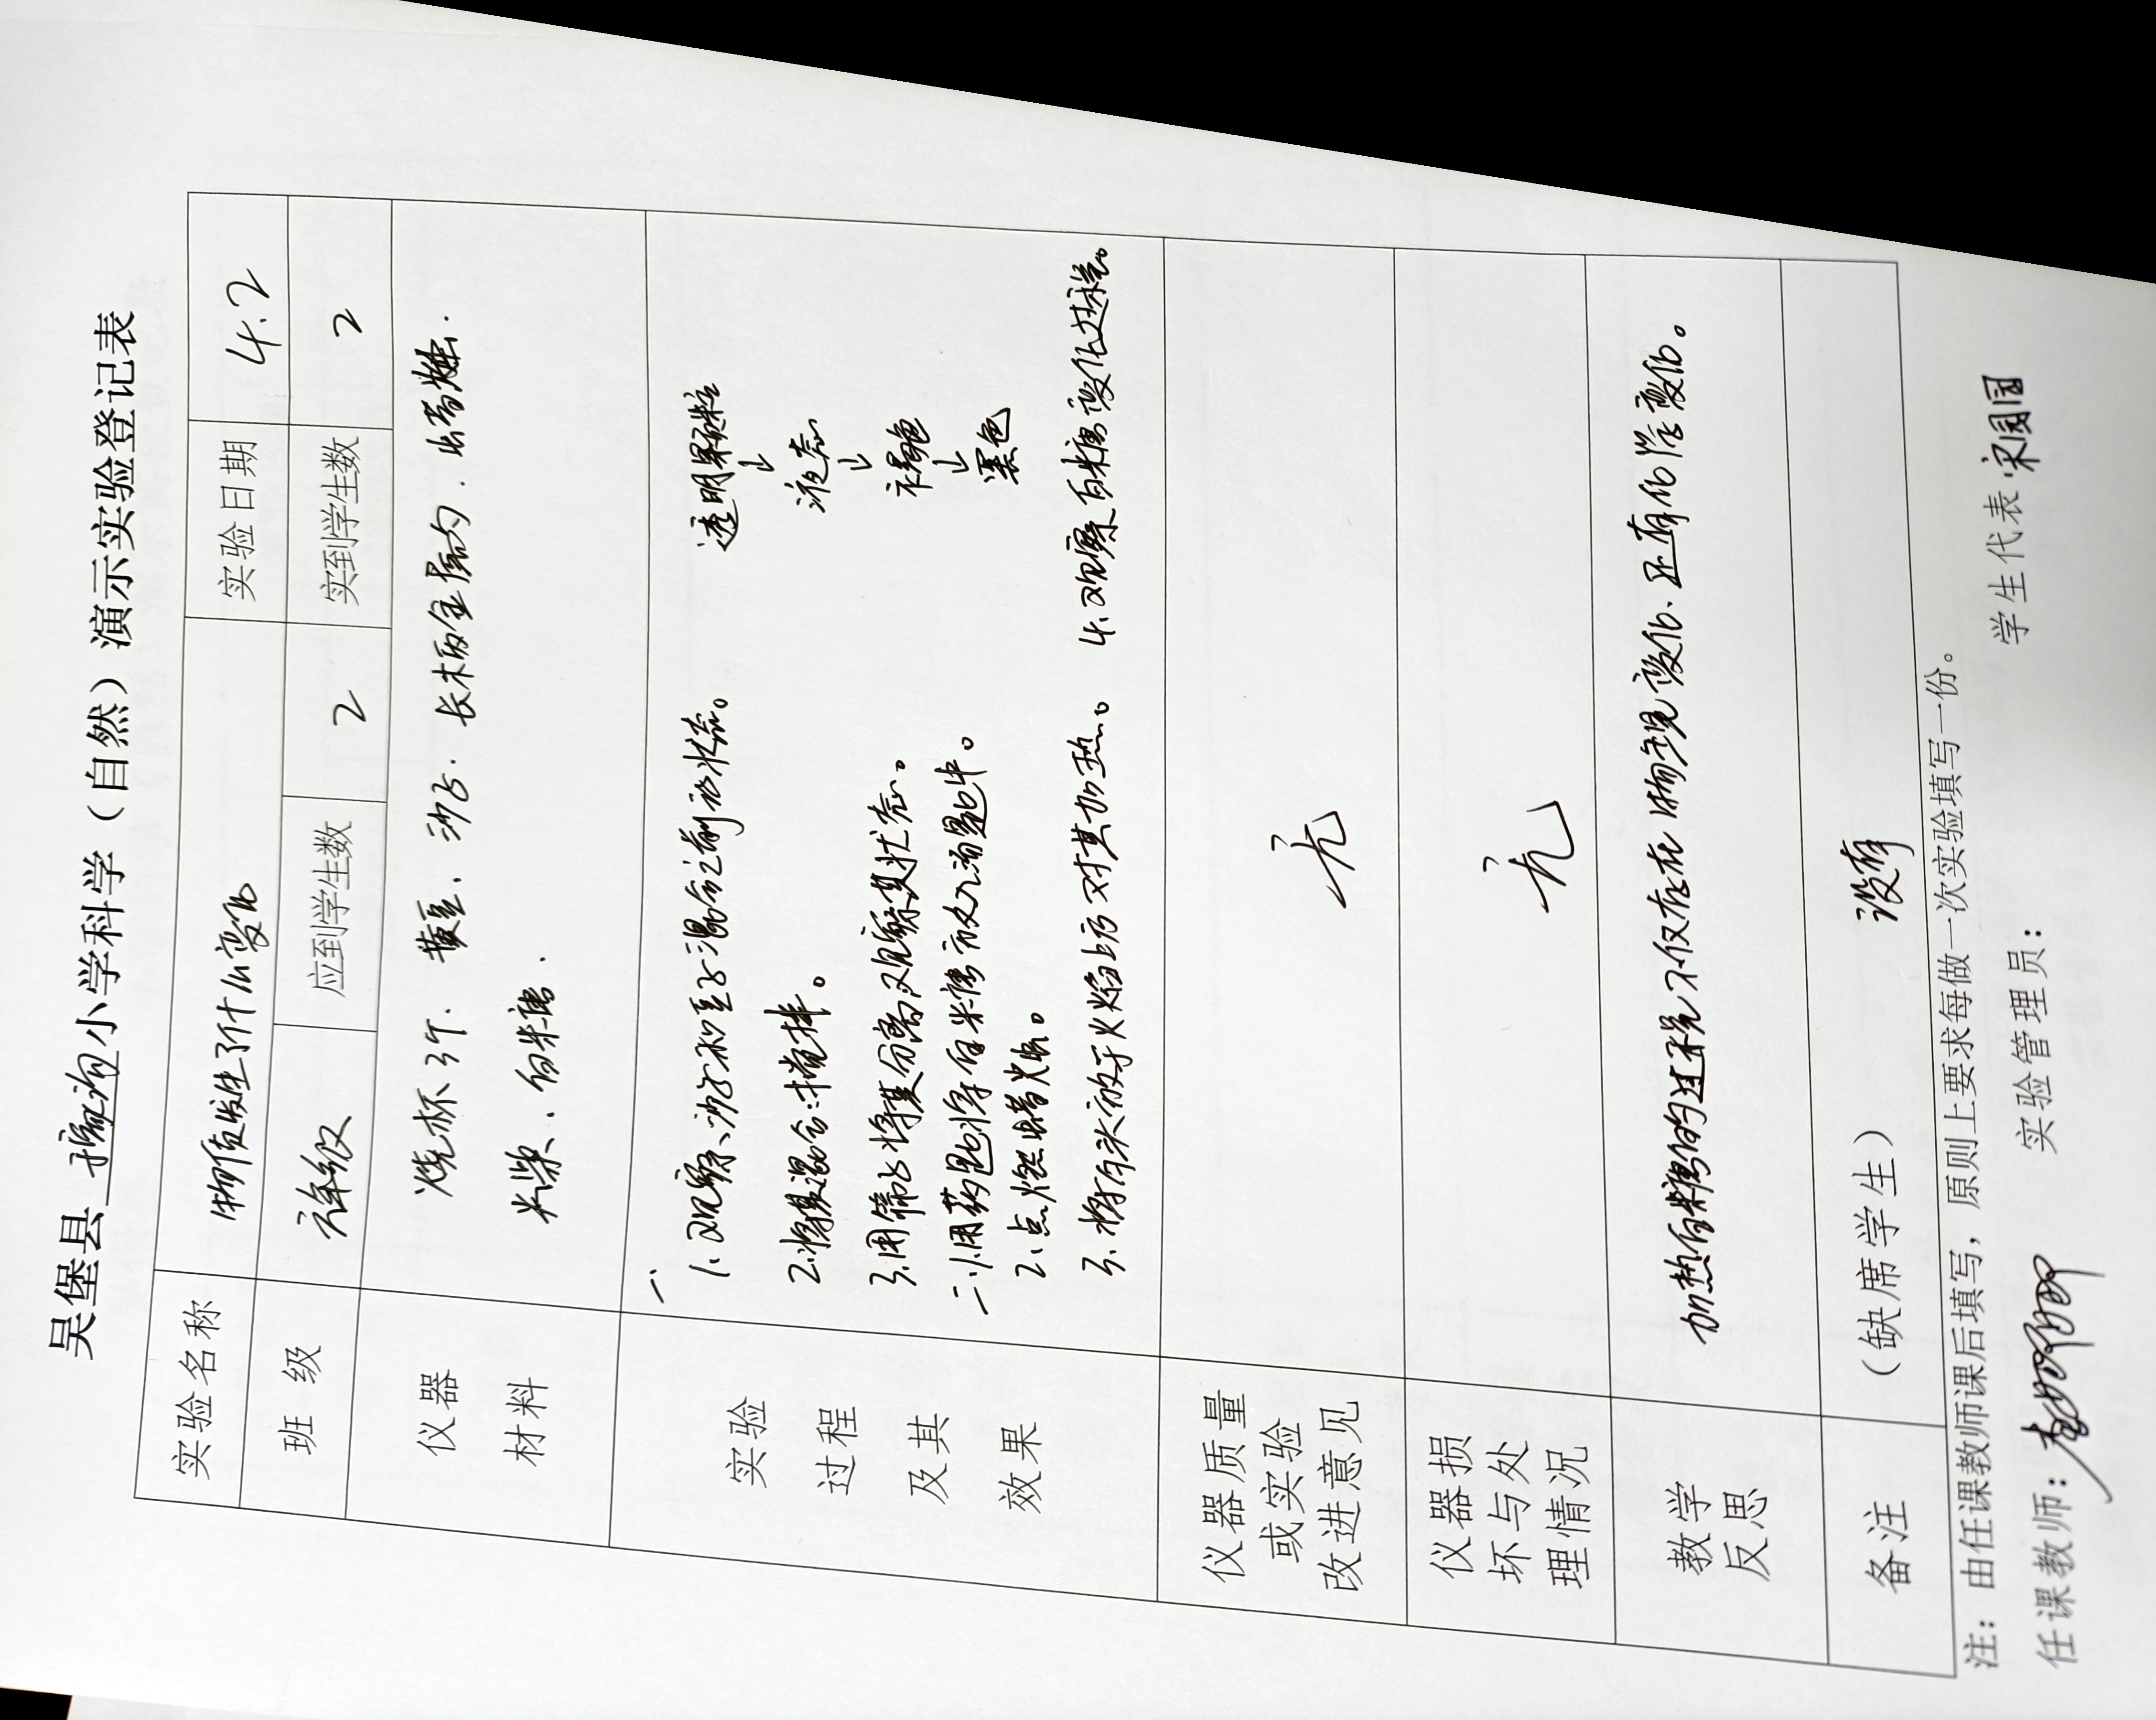 吴堡县 小学科学（自然）演示实验登记表
实验名称 物质发生了什么变化 实验日期 4.2
班 级 六年级 应到学生数 2 实到学生数 2
仪器 烧杯3个. 黄豆、沙子. 长柄金属勺. 蜡烛.
材料 火柴、白糖.
实验 过程 及其 效果
一、
1.观察沙子和豆子混合之前的状态。 透明颗粒
↓
2.将其混合搅拌。 液态
↓
3.用筛子将其分离,观察其状态。 褐色
↓
二、1.用药匙将白糖放入汤匙中。 黑色
2.点燃蜡烛。
3.将勺头放于火焰上方对其加热。 4.观察白糖变化过程。
仪器质量 或实验 改进意见 无
仪器损 坏与处 理情况 无
教学 反思 加热白糖的过程不仅存在物理变化.还有化学变化。
备注 （缺席学生） 没有
注：由任课教师课后填写，原则上要求每做一次实验填写一份。
任课教师： 实验管理员： 学生代表